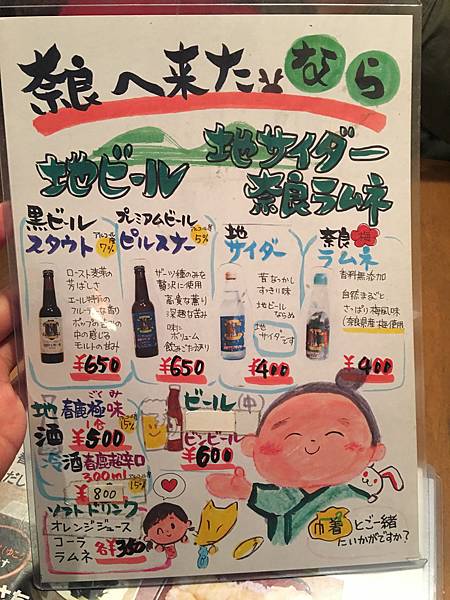 奈良へ来たなら
地ビール
地サイダー
奈良ラムネ
黒ビール
スタウト
アルコール度
7%
ロースト麦芽の
芳ばしさ
エール特有の
フルーティな香り
ホップの苦味の
中の感じる
モルトの甘み
¥650
プレミアムビール
ピルスナー
アルコール度
5%
ザーツ種のみを
贅沢に使用
高貴な薫り
深遠な苦み
味に
ボリューム
飲みごたえあり
¥650
地
サイダー
昔なつかし
すっきり味
地ビール
ならぬ
地
サイダーです
¥400
奈良 梅
ラムネ
香料無添加
自然まるごと
さっぱり梅風味
(奈良県産梅使用)
¥400
地酒
春鹿極味
ごくみ
1合
15%
¥500
冷酒 春鹿超辛口
300ml
アルコール度
15%
¥800
ビール
ビンビール
¥600
ソフトドリンク
オレンジジュース
コーラ
ラムネ
各¥350
巾着 とご一緒
にいかがですか?